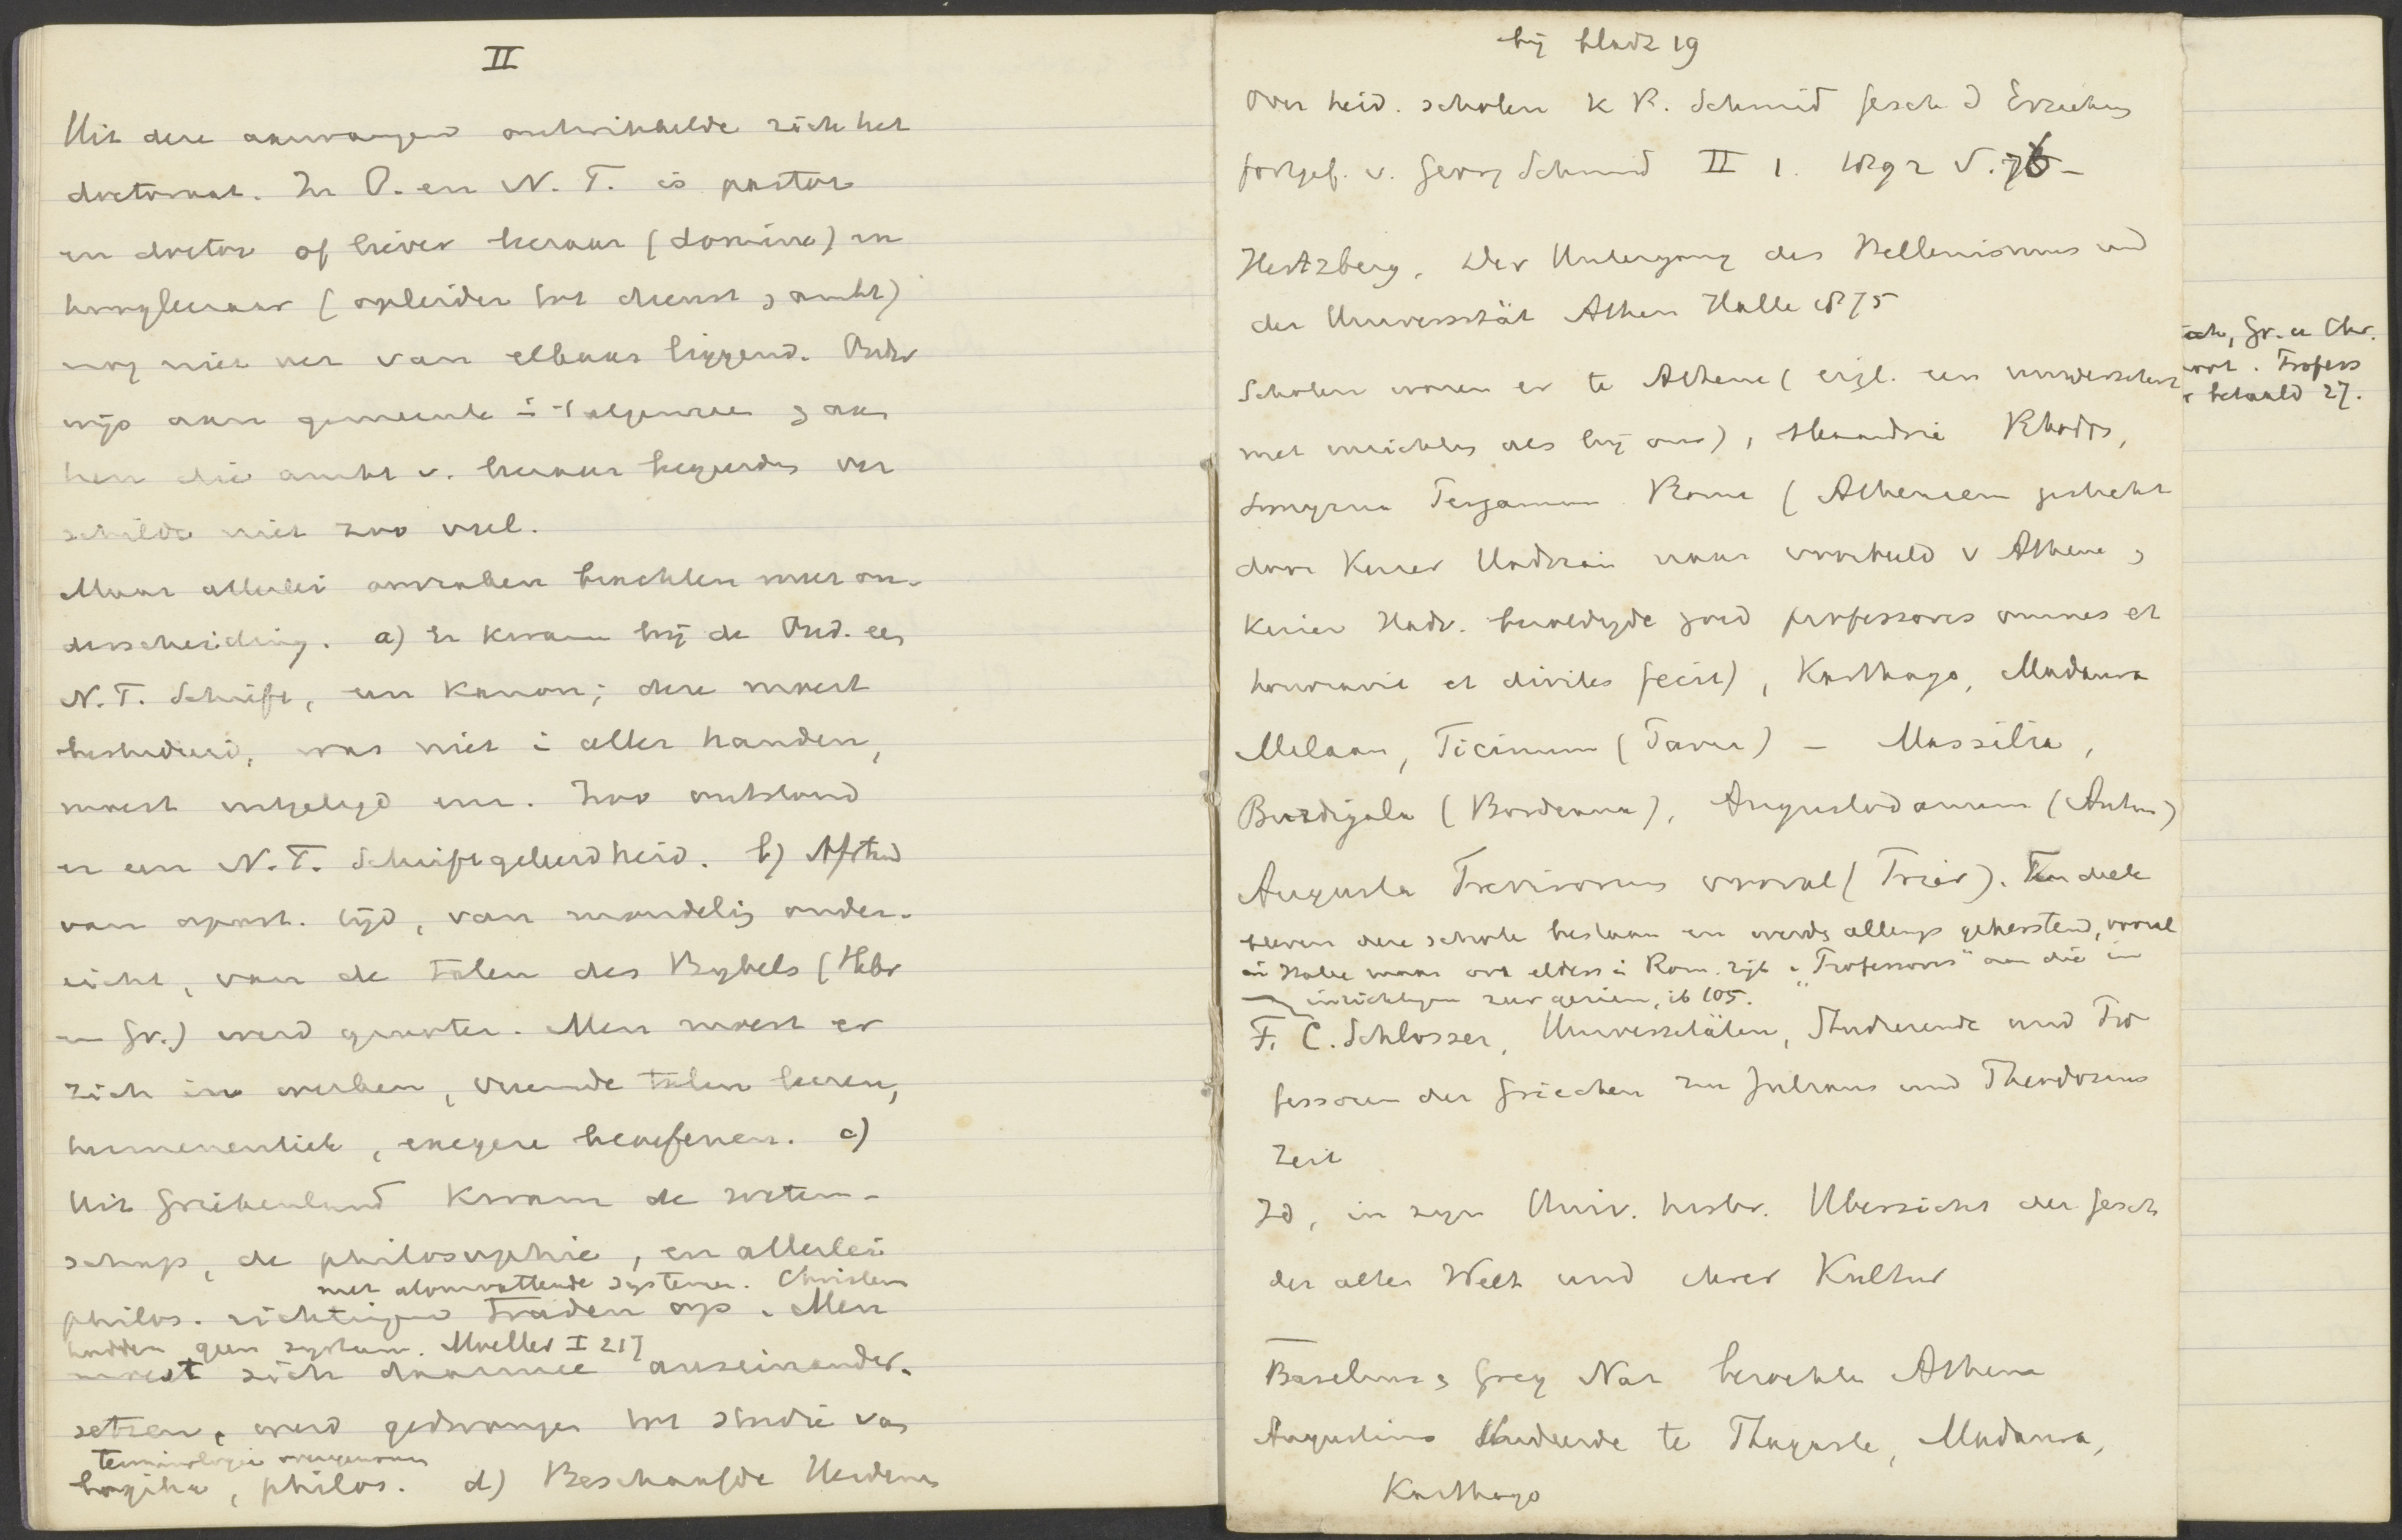 II
Uit deze aanvangen ontwikkelde zich het
doctoraat. In O. en N. T. is pastor
en doctor of liever leeraar (domine) en
hoogleeraar (opleider tot dienst, ambt)
nog niet ver van elkaar liggend. Onder
wijs aan gemeente i 't algemeen & aan
hen die ambt v. leeraar begeerden ver
schilde niet zoo veel.
Maar allerlei oorzaken brachten meer on-
derscheiding. a) Er kwam bij de Oud. een
N. T. Schrift, een Kanon; deze moest
bestudeerd, was niet i aller handen,
moest uitgelegd enz. Zoo ontstond
er een N. T. Schriftgeleerdheid. b) Afstand
van apost. tijd, van mondelig onder-
richt, van de talen des Bybels (Hebr
en Gr.) werd grooter. Men moest er
zich in werken, vreemde talen leeren,
hermeneutiek, exegese beoefenen. c)
Uit Griekenland kwam de weten-
schap, de philosophie, en allerlei
met alomvattende systemen. Christen
philos. richtingen traden op. Men
hadden geen systeem. Moeller I 217
moest zich daarmee auseinander-
setzen, werd gedwongen tot studie van
terminologie overgenomen
logika, philos. d) Beschaafde Heidenen
bij bladz 19
Over heid. scholen K. A. Schmid Gesch d Erziehung
fortges. v. Georg Schmid II 1. 1892 S. 76-
Hertzberg, Der Untergang des Hellenismus und
der Universität Athen Halle 1875
Scholen waren er te Athene (eigl. een universiteit
met inrichting als bij ons), Alexandrië Rhodos,
Smyrna Pergamum Rome (Atheneum gesticht
door Keizer Hadrian naar voorbeeld v Athene,
Keizer Hadr. bezoldigde goed professores omnes et
honoravit et divites fecit), Karthago, Madaura
Milaan, Ticinum (Pavia) – Massilia,
Burdigala (Bordeaux), Augustodunum (Autun)
Augusta Trevirorum vooral (Trier). Ten deele
bleven deze scholen bestaan en werden allengs gekerstend, vooral
in Italië maar ook elders i Rom. rijk. "Professores" aan die in
inrichtingen
F. C. Schlosser, Universitäten, Studierende und Pro
fessoren der Griechen zu Julians und Theodosius
Zeit
Id, in zijn Univ. histor. Uebersicht der Gesch
der alten Welt und ihrer Kultur
Basilius & Greg Naz bezochten Athene
Augustinus studeerde te Thagaste, Madaura,
Karthago
Gr. en Chr.
Profess
betaald 27.